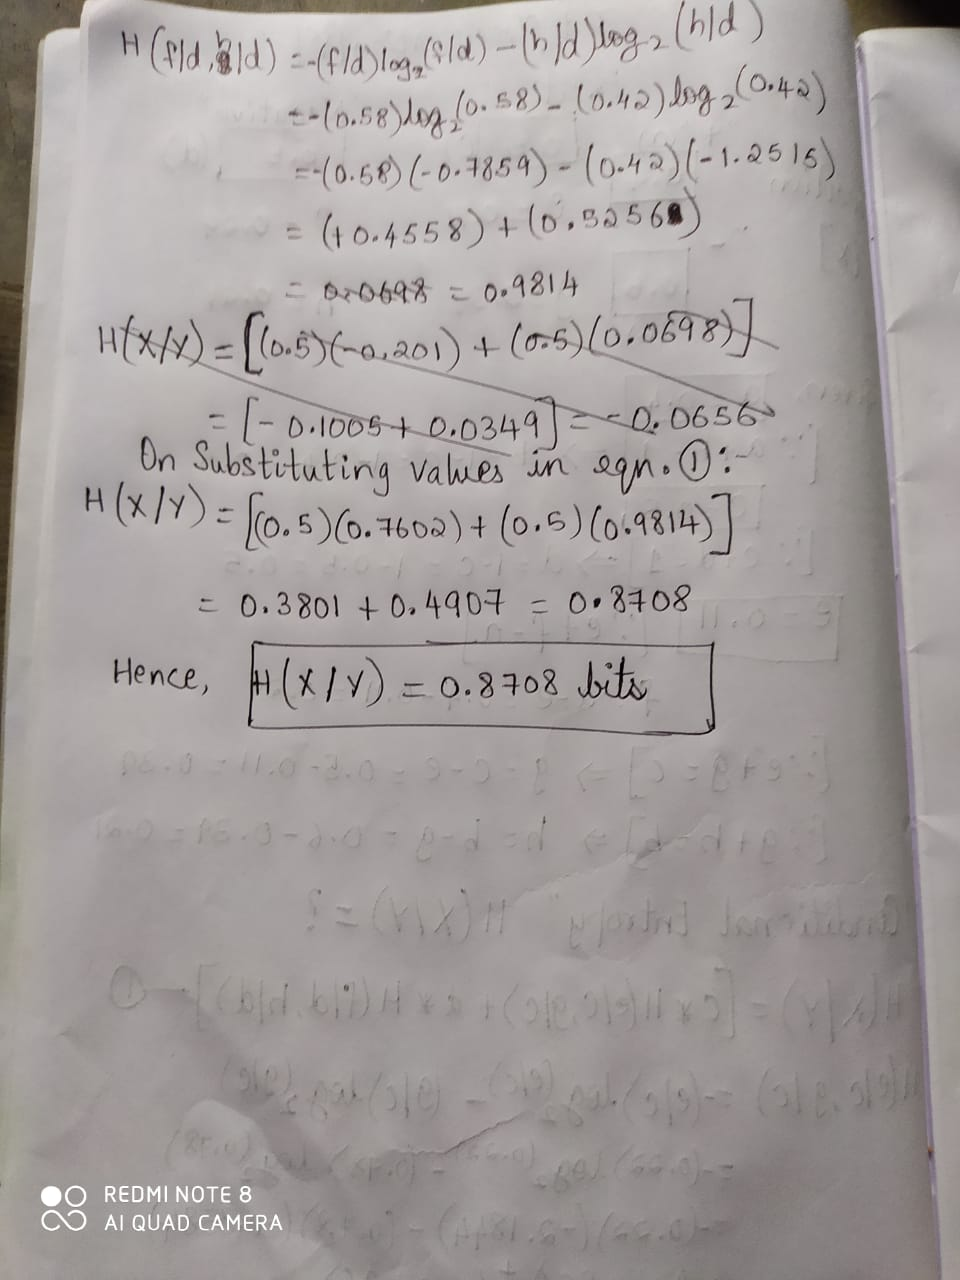 H(f/d, h/d) = -(f/d)log₂(f/d) - (h/d)log₂(h/d)
= -(0.58)log₂(0.58) - (0.42)log₂(0.42)
= -(0.58)(-0.7859) - (0.42)(-1.2515)
= (+0.4558) + (0.5256)
= 0.0698 = 0.9814
H(X/Y) = [(0.5)(-0.201) + (0.5)(0.0698)]
= [-0.1005 + 0.0349] = -0.0656
On Substituting values in eqn. ①:-
H(X/Y) = [(0.5)(0.7602) + (0.5)(0.9814)]
= 0.3801 + 0.4907 = 0.8708
Hence, H(X/Y) = 0.8708 bits
REDMI NOTE 8
AI QUAD CAMERA